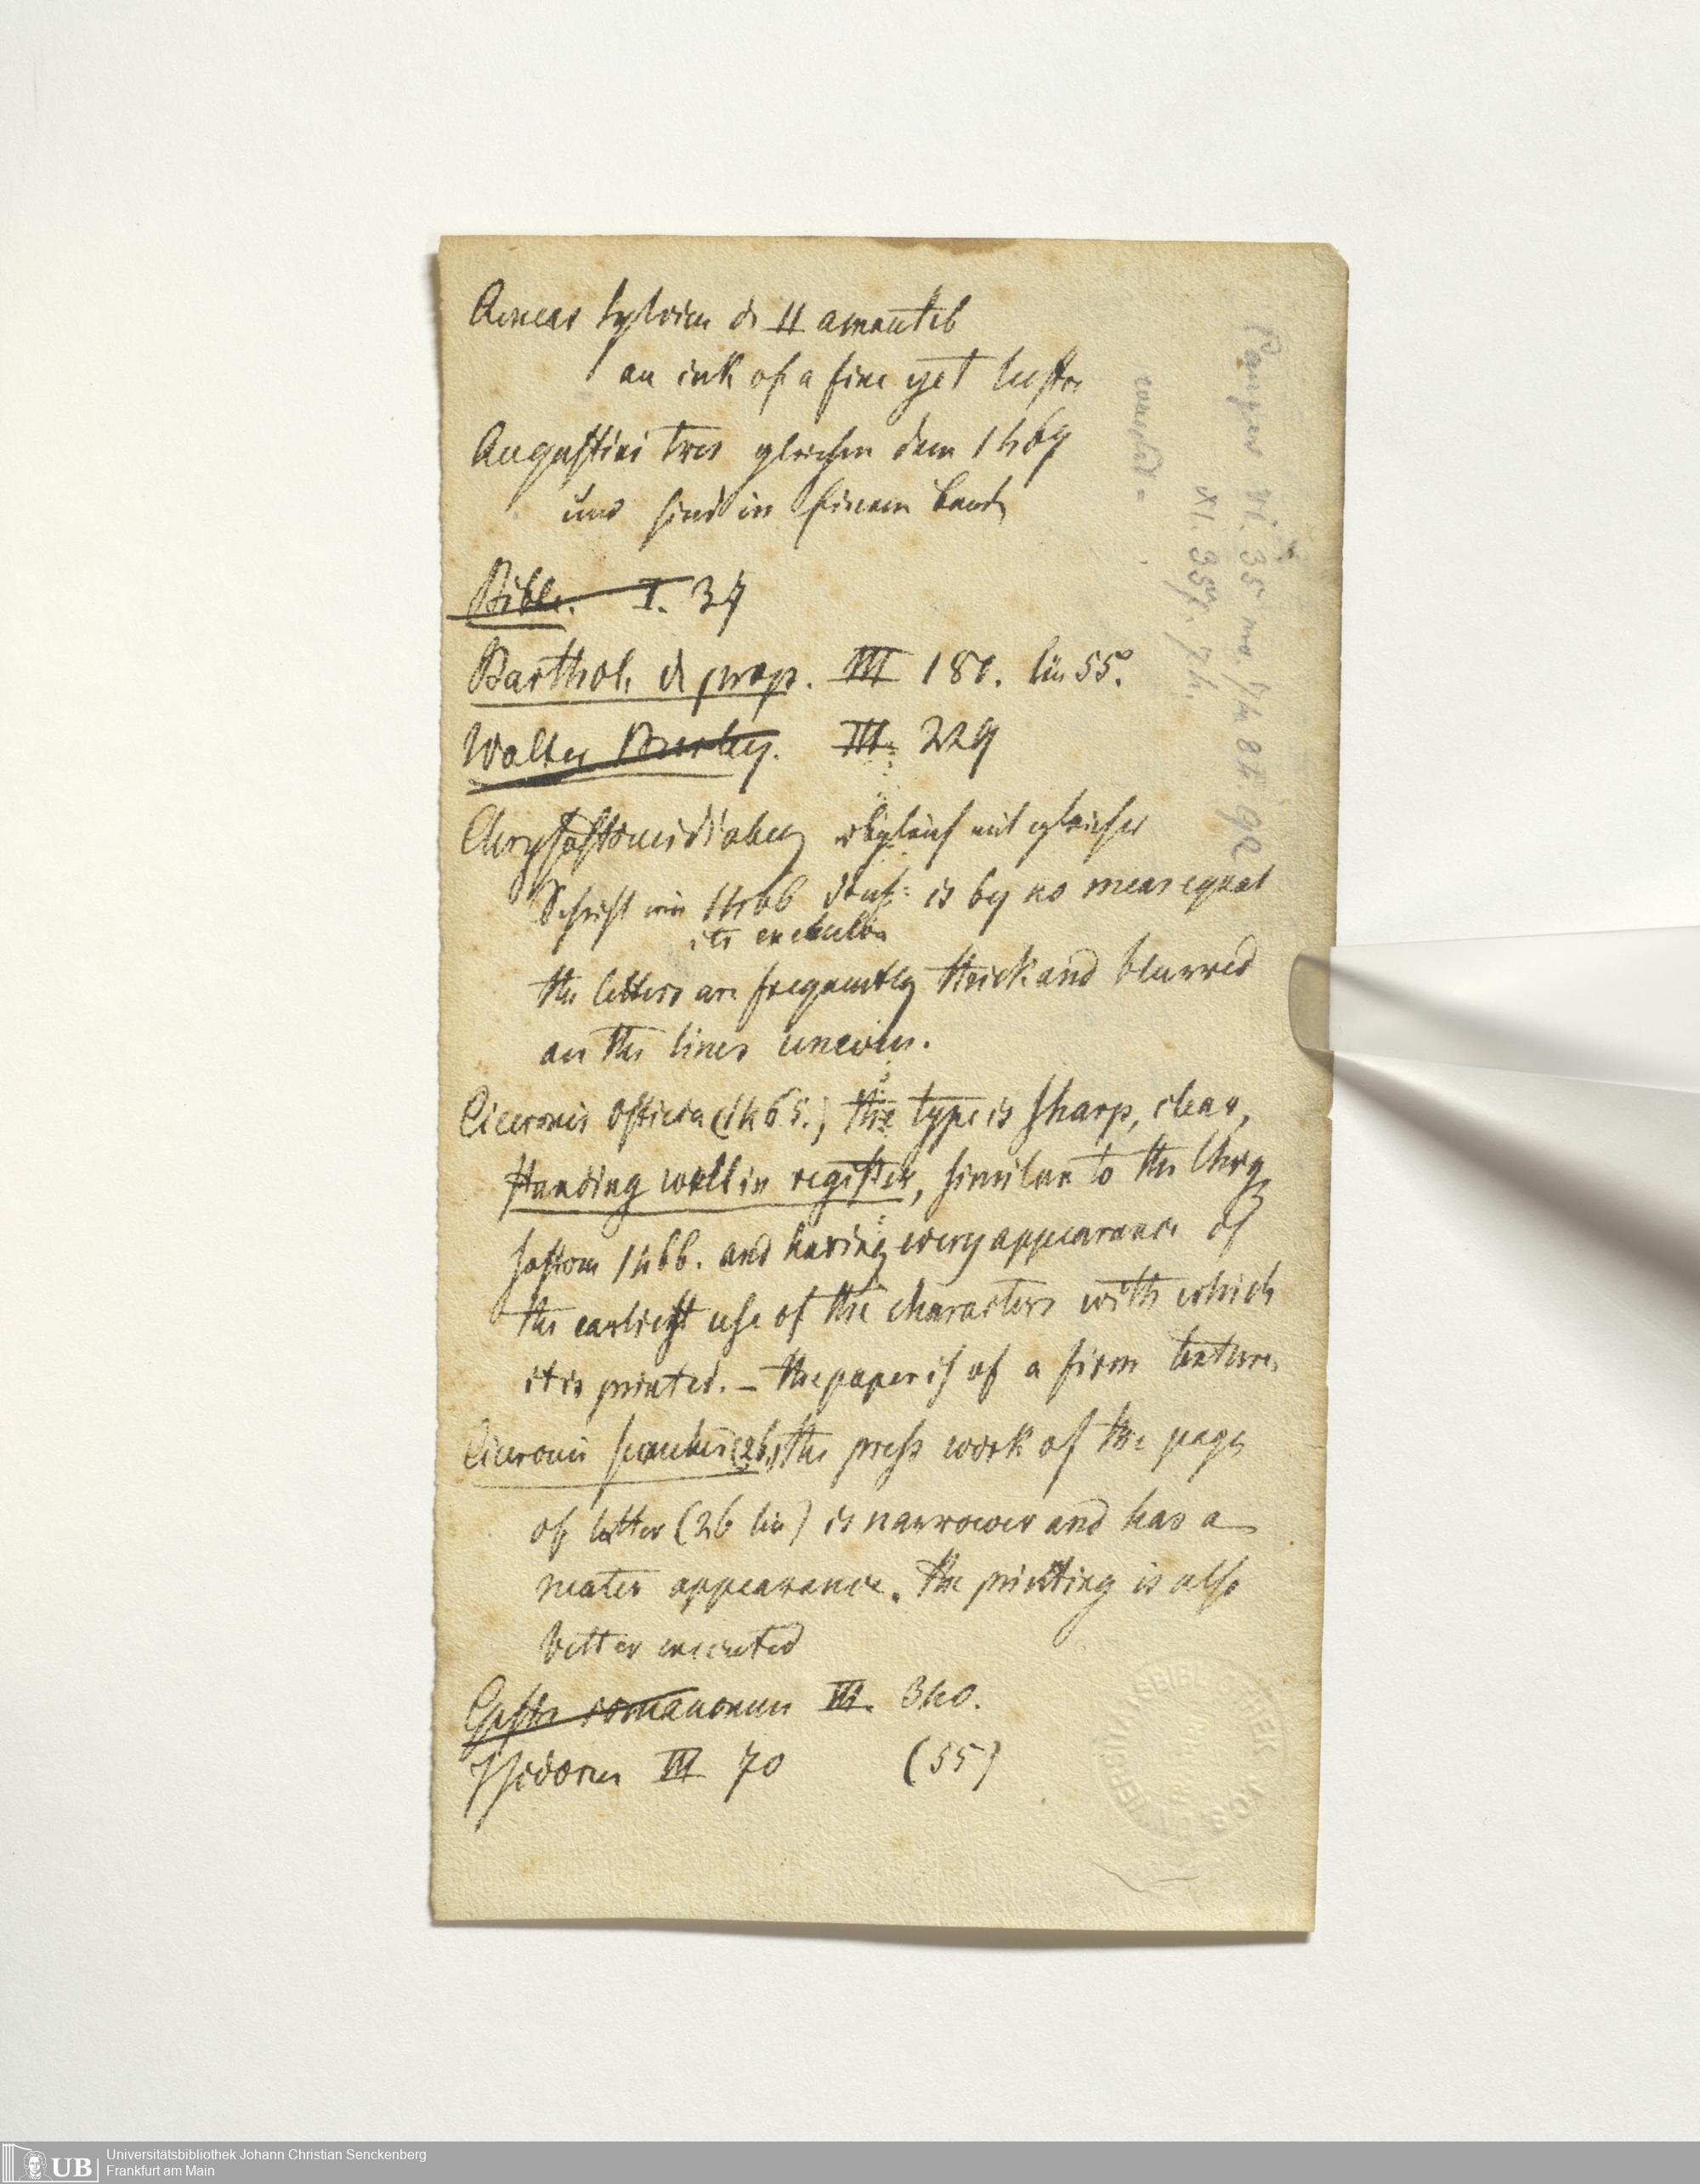 Aeneas Sylvius de II amantib
an ink of a fine yet lustre
Augustini tres gleichen dem 1469
und sind in einem Bande
Bible. I. 37
Barthol. de prop. III 180. lin 55.
Walter Burley. III. 229
Chrysostomi dialog obgleich mit gleicher
Schrift wie 1466 is by no means equal
its
the letters are frequently thick and blurred
an the lines uneven.
Ciceronis officia (1465.) the type is sharp, clear,
standing well in register, similar to the Chry
sostom 1466. and having every appearance of
the earliest use of the characters with which
it is printed. – the paper is of a firm texture.
Ciceronis (26.) the press work of the page
of letter (26 lin) is narrower and has a
neater appearance. the printing is also
better executed
Gesta romanorum III. 340.
Isidorus III 70 (55)
Panzer
XI. 357. 74.
UNIVERSITÄTSBIBLIOTHEK
UB
Universitätsbibliothek Johann Christian Senckenberg
Frankfurt am Main